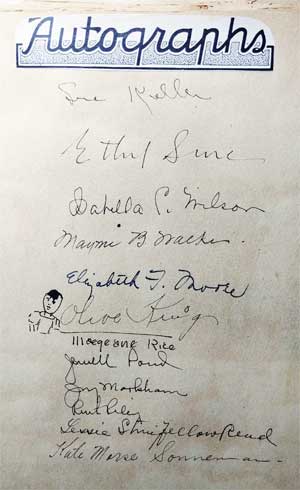 Autographs
Sue Keller
Ethel Sine
Isabella C. Wilson
Mayme B
Elizabeth T. Moore
Olive King
Rice
Jewell Pond
Joy Markham
Ruth
Lessie Stringfellow Read
Kate Morse Sonneman